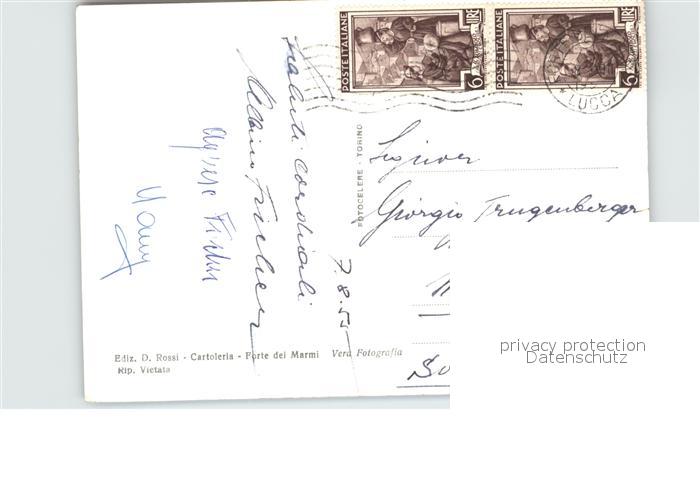 POSTE ITALIANE
LIRE
6
POSTE ITALIANE
LIRE
6
LUCCA
Saluti Cordiali
Albino Fischer
Agnese Fischer
7.8.51
FOTOCELERE - TORINO
Signor
Giorgio Trugenberger
Ediz. D. Rossi - Cartoleria - Forte dei Marmi
Vera Fotografia
Rip. Vietata
privacy protection
Datenschutz